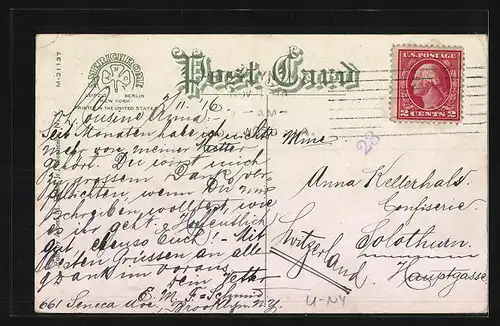 M-21137
AMERICHROME
BERLIN
NEW YORK
PRINTED IN THE UNITED STATES
Post Card
U.S. POSTAGE
2 CENTS 2
AM
23
7/11. '16.
L. Cousine Anna!
Seit Monaten habe ich nichts
mehr von meiner Mutter
gehört. Du wirst mich
zu grossem Dank ver-
pflichten, wenn Du mir
schreiben wolltest, wie
es ihr geht. Hoffentlich
gut, ebenso Euch! - Mit
besten Grüssen an alle
dank im voraus
dein Vetter
E. M. F. Schmid
661 Seneca Ave, Brooklyn. N.Y.
Mme.
Anna Kellerhals.
Confiserie.
Solothurn.
Hauptgasse.
Switzerland.
U-NY